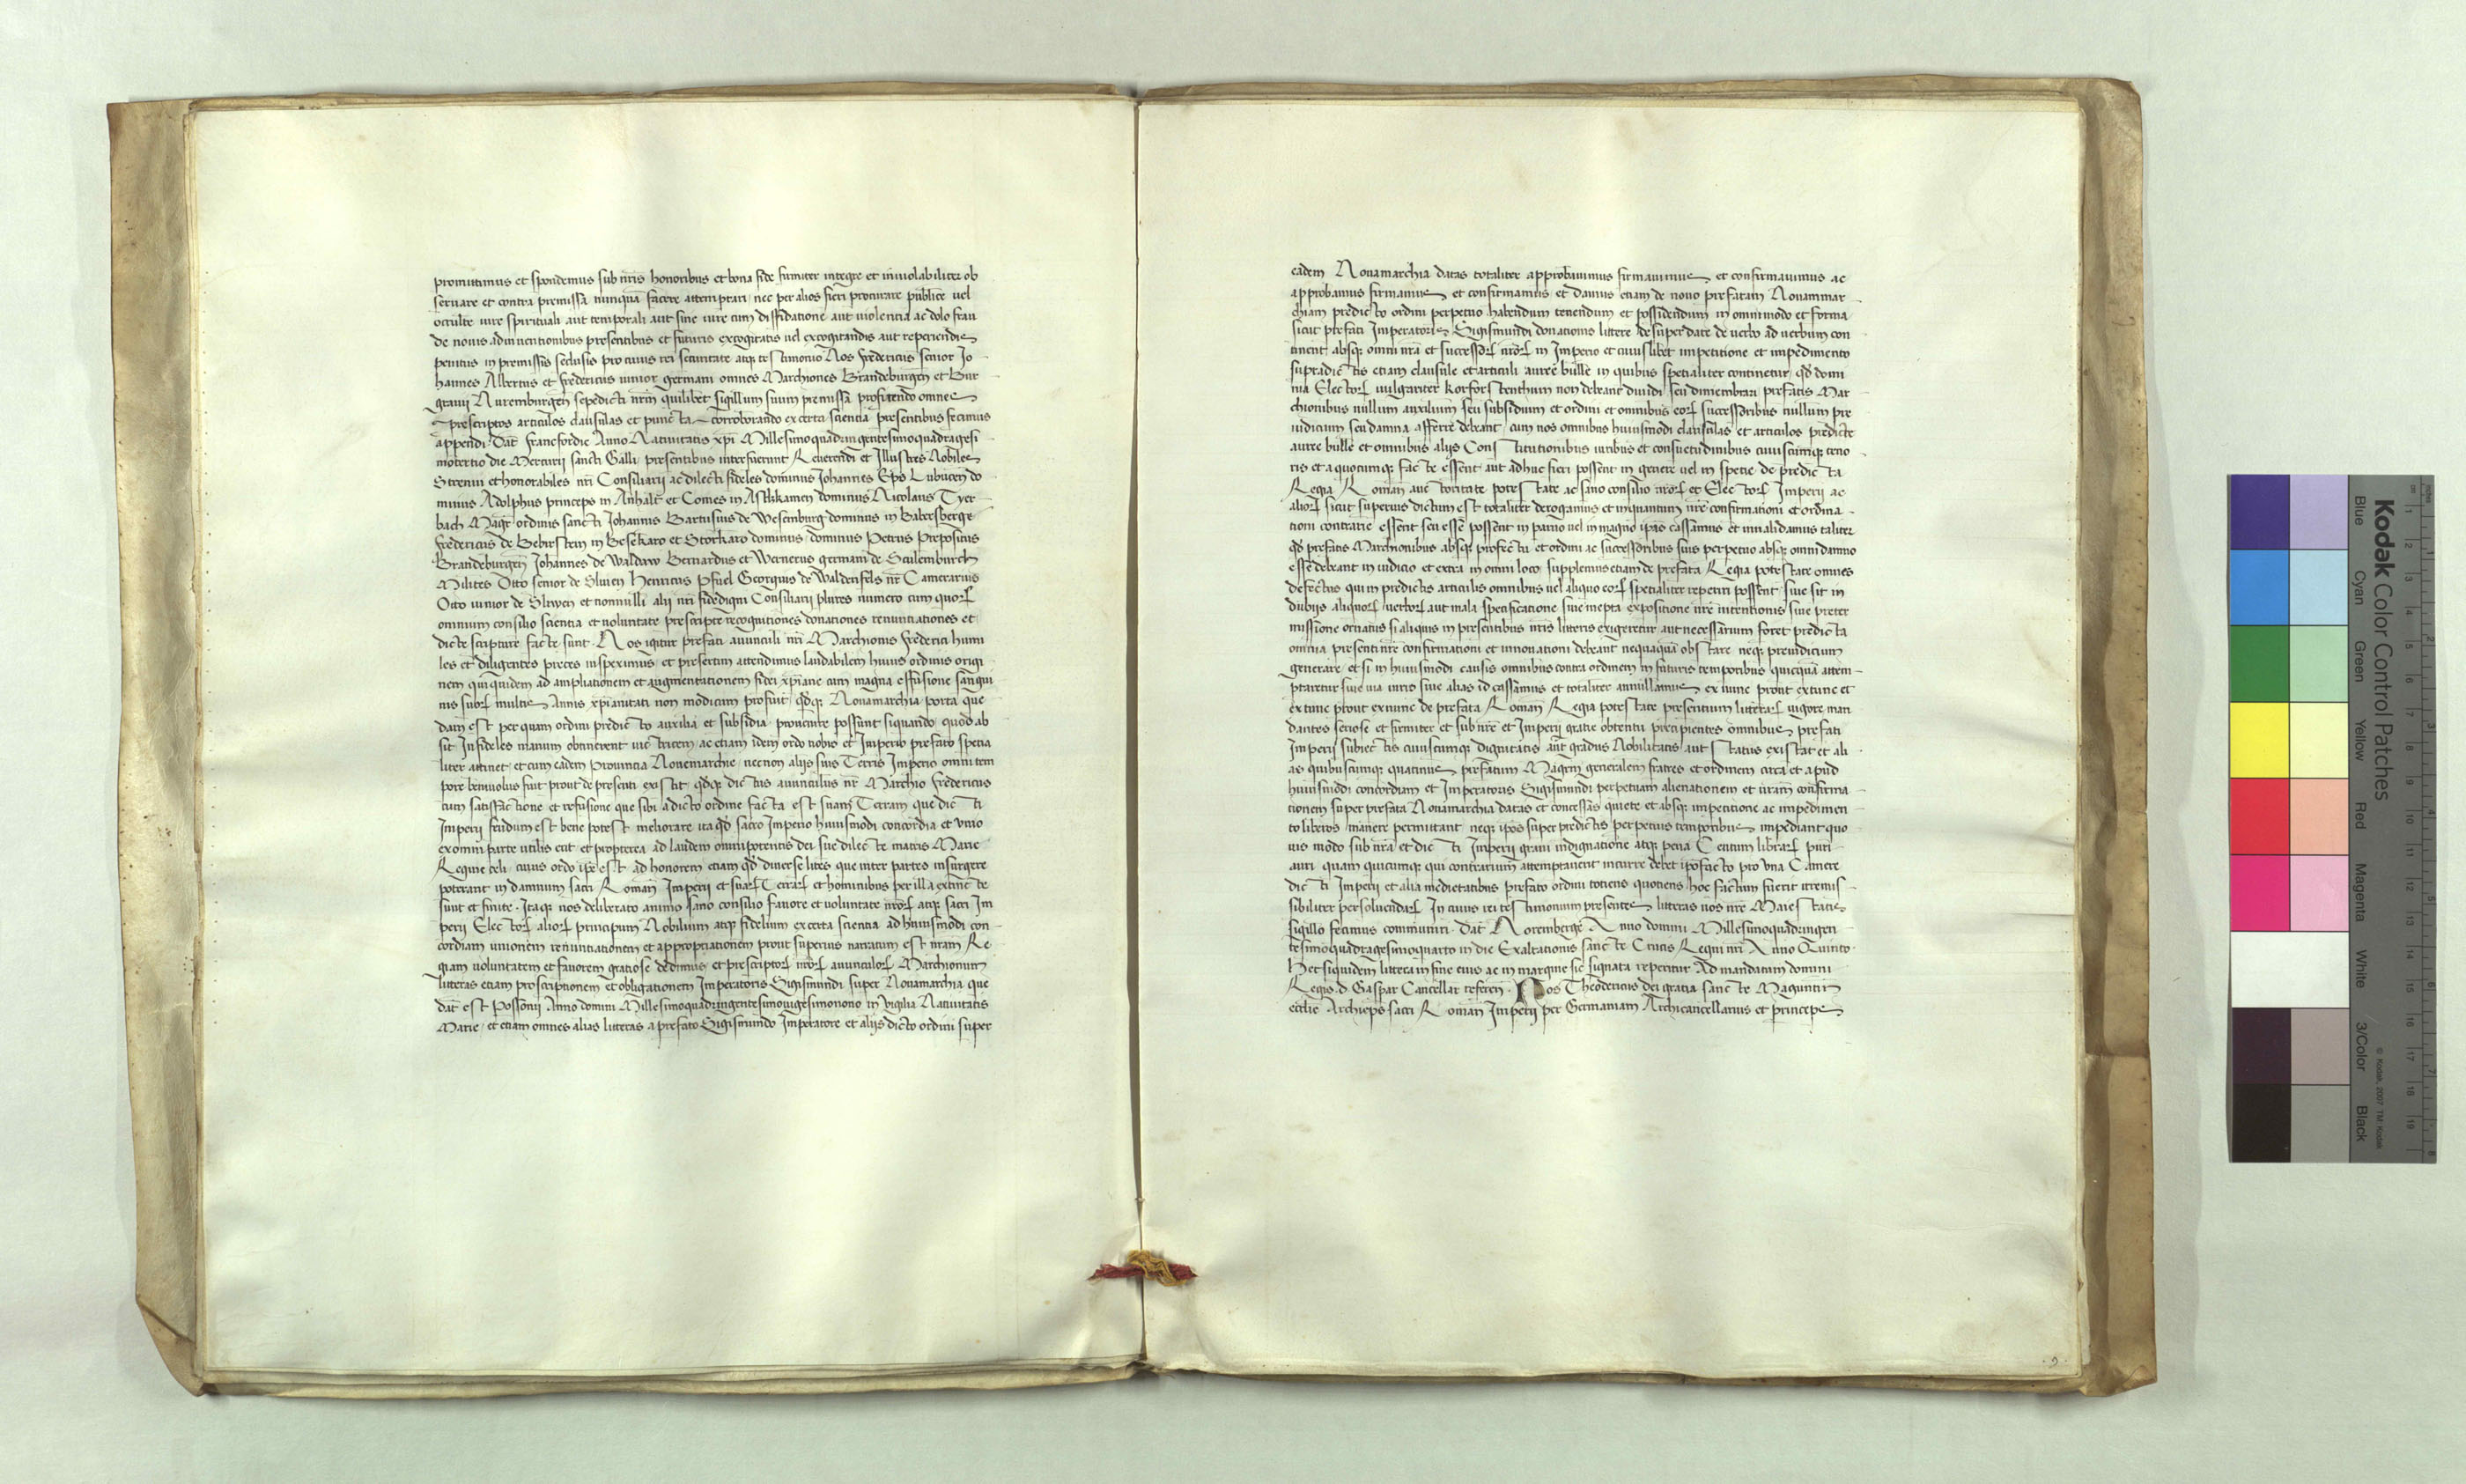 promittimus et spondemus sub nr̄is honoribus et bona fide firmiter integre et inviolabiliter ob
servare et contra premissa nunquā facere attemptari nec per alios fieri procurare publice vel
occulte iure spirituali aut temporali aut sine iure cum diffidatione aut violencia ac dolo frau
de novis adinventionibus presentibus et futuris excogitatis vel excogitandis aut reperiendis
penitus in premissis seclusis pro cuius rei securitate atq; testimonio Nos Fredericus senior Jo
hannes Albertus et Fredericus iunior germani omnes Marchiones Brandeburgeñ et Bur
gravii Nuremburgeñ sepedicti nr̄m quilibet sigillum suum premissa profitendo omnes
prescriptos articulos clausulas et puncta corroborando ex certa sciencia presentibus fecimus
appendi Dat̄ Francfordie Anno Nativitatis xp̄i Millesimoquadringentesimoquadragesi
motertio die Mercurii sancti Galli presentibus interfuerunt Reverendi et Illustres Nobiles
Strenui et honorabiles nr̄i Consiliarii ac dilecti fideles dominus Johannes Ep̄s Lubuceñ do
minus Adolphus princeps in Anhalt et Comes in Asthkanien dominus Nicolaus Tyer
bach Magr̄ ordinis sancti Johannis Bartusius de Wesemburg dominus in
Fredericus de Bebirstem in Besekaro et Storkaro dominus dominus Petrus Prepositus
Brandeburgeñ Johannes de Waldow Bernardus et Wernerus germani de Sculemburch
Milites Otto senior de Sliwen Henricus Pfuel Georgius de Waldenfels nr̄ Camerarius
Otto iunior de Sliwen et nonnulli alii nr̄i fidedigni Consiliarii plures numero cum quoꝝ
omnium consilio scientia et voluntate prescripte recognitiones donationes renuntiationes et
dicte scripture facte sunt. Nos igitur prefati avunculi nr̄i Marchionis Frederici humi
les et diligentes preces inspeximus et presertim attendimus laudabilem huius ordinis origi
nem qui quidem ad ampliationem et augmentationem fidei xp̄iane cum magna effusione sangui
nis suoꝝ multis Annis xp̄ianitati non modicum profuit qd̄q; Novamarchia porta que
dam est per quam ordini predicto auxilia et subsidia provenire possunt siquando quod ab
sit Infideles manum obtinerent victricem ac etiam idem ordo nobis et Imperio prefato specia
liter attinet et cum eadem Provincia Novemarchie necnon alijs suis Terris Imperio omni tem
pore benivolus fuit prout de presenti existit qd̄q; dictus avunculus nr̄ Marchio Fredericus
cum satisfactione et refusione que sibi a dicto ordine facta est suam Terram que dicti
Imperii feudum est bene potest meliorare ita qd̄ sacro Imperio huiusmodi concordia et unio
ex omni parte utilis erit et propterea ad laudem omnipotentis dei sue dilecte matris Marie
Regine celi cuius ordo ip̄e est ad honorem etiam qd̄ diverse lites que inter partes insurgere
poterant in damnum sacri Romañ Imperii et suaꝝ Terraꝝ et hominibus per illa extincte
sunt et finite. Itaq; nos deliberato animo sano consilio favore et voluntate nr̄oꝝ atq; sacri Im
perii Electoꝝ alioꝝ principum Nobilium atq; fidelium ex certa scientia ad huiusmodi con
cordiam unionem renuntiationem et appropriationem prout superius narratum est nr̄am Re
giam voluntatem et favorem gratiose dedimus et prescriptoꝝ nr̄oꝝ avunculoꝝ Marchionum
litteras etiam proscriptionem et obligationem Imperatoris Sigismundi super Novamarchia que
dat̄ est Possonii Anno domini Millesimoquadringentesimovigesimonono in vigilia Nativitatis
Marie et etiam omnes alias litteras a prefato Sigismundo Imperatore et alijs dicto ordini super
eadem Novamarchia datas totaliter approbavimus firmavimus et confirmavimus ac
approbamus firmamus et confirmamus et damus etiam de novo prefatam Novammar
chiam predicto ordini perpetuo habendum tenendum et possidendum in omni modo et forma
sicut prefati Imperatoris Sigismundi donationis littere desuper date de verbo ad verbum con
tinent absq; omni nr̄a et successoꝝ nr̄oꝝ in Imperio et cuiuslibet impetitione et impedimento
supradictis etiam clausule et articuli auree bulle in quibus specialiter continetur qd̄ domi
nia Electoꝝ vulgariter korforstenthum non debeant dividi seu dimembrari prefatis Mar
chionibus nullum auxilium seu subsidium et ordini et omnibus eoꝝ successoribus nullum pre
iudicium seu damna afferre debeant cum nos omnibus huiusmodi clausulas et articulos predicte
auree bulle et omnibus alijs Constitutionibus iuribus et consuetudinibus cuiuscumq; teno
ris et a quocumq; facte essent aut adhuc fieri possent in genere vel in specie de predicta
Regia Romañ auctoritate potestate ac sano consilio nr̄oꝝ et Electoꝝ Imperii ac
alioꝝ sicut superius dictum est totaliter derogamus et inquantum nr̄e confirmationi et ordina
tioni contrarie essent seu esse possent in parvo vel in magno ip̄as cassamus et invalidamus taliter
qd̄ prefatis Marchionibus absq; profectu et ordini ac successoribus suis perpetuo absq; omni damno
esse debeant in iudicio et extra in omni loco supplemus etiam de prefata Regia potestate omnes
defectus qui in predictis articulis omnibus vel aliquo eoꝝ specialiter reperiri possent sive sit in
dubijs aliquoꝝ verboꝝ aut mala specificatione sive inepta expositione nr̄e intentionis sive preter
missione ornatus si aliquis in presentibus nr̄is litteris exigeretur aut necessarium foret predicta
omnia presenti nr̄e confirmationi et innovationi debeant nequaquā obstare neq; preiudicium
generare et si in huiusmodi causis omnibus contra ordinem in futuris temporibus quicquā attem
ptaretur sive via iuris sive alias id cassamus et totaliter annullamus ex nunc prout extunc et
extunc prout exnunc de prefata Romañ Regia potestate presentium litteraꝝ vigore man
dantes seriose et firmiter et sub nr̄e et Imperii gratie obtentu precipientes omnibus prefati
Imperii subiectis cuiuscumq; dignitatis aut gradus Nobilitatis aut status existat et ali
as quibuscumq; quatinus prefatum Magr̄m generalem fratres et ordinem circa et apud
huiusmodi concordiam et Imperatoris Sigismundi perpetuam alienationem et nr̄am confirma
tionem super prefata Novamarchia datas et concessas quiete et absq; impetitione ac impedimen
to liberos manere permittant neq; ip̄os super predictis perpetuis temporibus impediant quo
vis modo sub nr̄a et dicti Imperii gravi indignatione atq; pena Centum libraꝝ puri
auri quam quicumq; qui contrarium attemptaverit incurre debet ip̄o facto pro una Camere
dicti Imperii et alia medietatibus prefato ordini totiens quotiens hoc factum fuerit irremis
sibiliter persolvendaꝝ In cuius rei testimonium presentes litteras nos nr̄e Maiestatis
sigillo fecimus communiri. Dat̄ Noremberge Anno domini Millesimoquadringen
tesimoquadragesimoquarto in die Exaltationis sancte Crucis Regni nr̄i Anno Quinto.
Hec siquidem littera in fine eius ac in margine sic signata reperitur Ad mandatum domini
Regis d Gaspar Cancellar referen̄. Nos Theodericus dei gratia sancte Maguntiñ
ecclie Archiep̄s sacri Romañ Imperii per Germaniam Archicancellarius et princeps
.9.
Kodak Color Control Patches
Blue Cyan Green Yellow Red Magenta White 3/Color Black
© Kodak, 2007 TM: Kodak
inches 1 2 3 4 5 6 7 8
cm 1 2 3 4 5 6 7 8 9 10 11 12 13 14 15 16 17 18 19